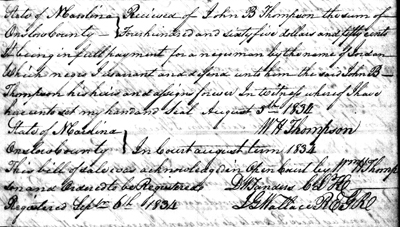 State of N Carolina } Received of John B Thompson the sum of
Onslow County } Four hundred and sixty five dollars and fifty cents
it being in full payment for a negro man by the name of
Which negro I warrant and defend unto him the said John B
Thompson his heirs and assigns forever In witness whereof I have
hereunto set my hand and Seal August 5th 1834
W H Thompson
State of N Carolina }
Onslow County } In Court august term 1834
This bill of Sale was acknowledged in Open Court by Wm H Thomp
son and Ordered to be Registered
Registered Sept 6th 1834